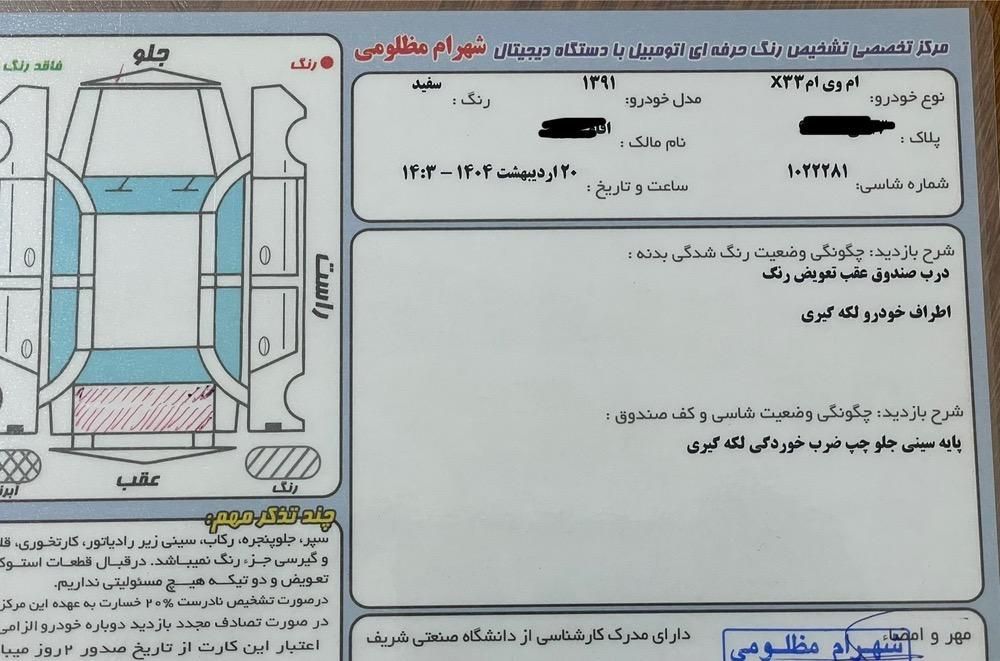 مرکز تخصصی تشخیص رنگ حرفه ای اتومبیل با دستگاه دیجیتال شهرام مظلومی
نوع خودرو: ام وی ام X۳۳ مدل خودرو: ۱۳۹۱ رنگ: سفید
پلاک: نام مالک:
شماره شاسی: ۱۰۲۲۲۸۱ ساعت و تاریخ: ۲۰ اردیبهشت ۱۴۰۴ - ۱۴:۳
شرح بازدید: چگونگی وضعیت رنگ شدگی بدنه:
درب صندوق عقب تعویض رنگ
اطراف خودرو لکه گیری
شرح بازدید: چگونگی وضعیت شاسی و کف صندوق:
پایه سینی جلو چپ ضرب خوردگی لکه گیری
مهر و امضاء
شهرام مظلومی
دارای مدرک کارشناسی از دانشگاه صنعتی شریف
رنگ
فاقد رنگ
جلو
راست
عقب
رنگ
چند تذکر مهم:
سپر، جلوپنجره، رکاب، سینی زیر رادیاتور، کارتخوری،
و گیرسی جزء رنگ نمیباشد. درقبال قطعات استوک
تعویض و دو تیکه هیچ مسئولیتی نداریم.
درصورت تشخیص نادرست ۲۰% خسارت به عهده این مرکز
در صورت تصادف مجدد بازدید دوباره خودرو الزامی
اعتبار این کارت از تاریخ صدور ۲ روز میبا